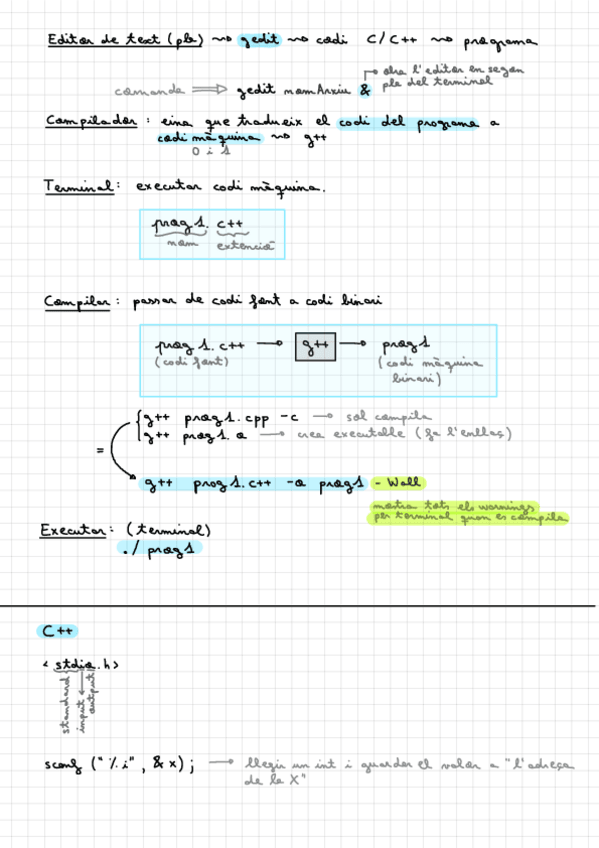 Editor de text (ple) ~> gedit ~> codi C/C++ ~> programa
obra l'editor en segon
pla del terminal
comanda => gedit nomArxiu &
Compilador : eina que tradueix el codi del programa a
codi màquina ~> g++
0 i 1
Terminal : executar codi màquina.
prog1. c++
nom extenció
Compilar : passar de codi font a codi binari
prog1. c++ → g++ → prog1
(codi font) (codi màquina
binari)
g++ prog1.cpp -c → sol compila
g++ prog1.o → crea executable (fa l'enllaç)
=
g++ prog1.c++ -o prog1 -Wall
mostra tots els warnings
per terminal quan es compila
Executar : (terminal)
./prog1
C++
<stdio.h>
standard
input
output
scanf ("%i", &x); → llegir un int i guardar el valor a "l'adreça
de la X"